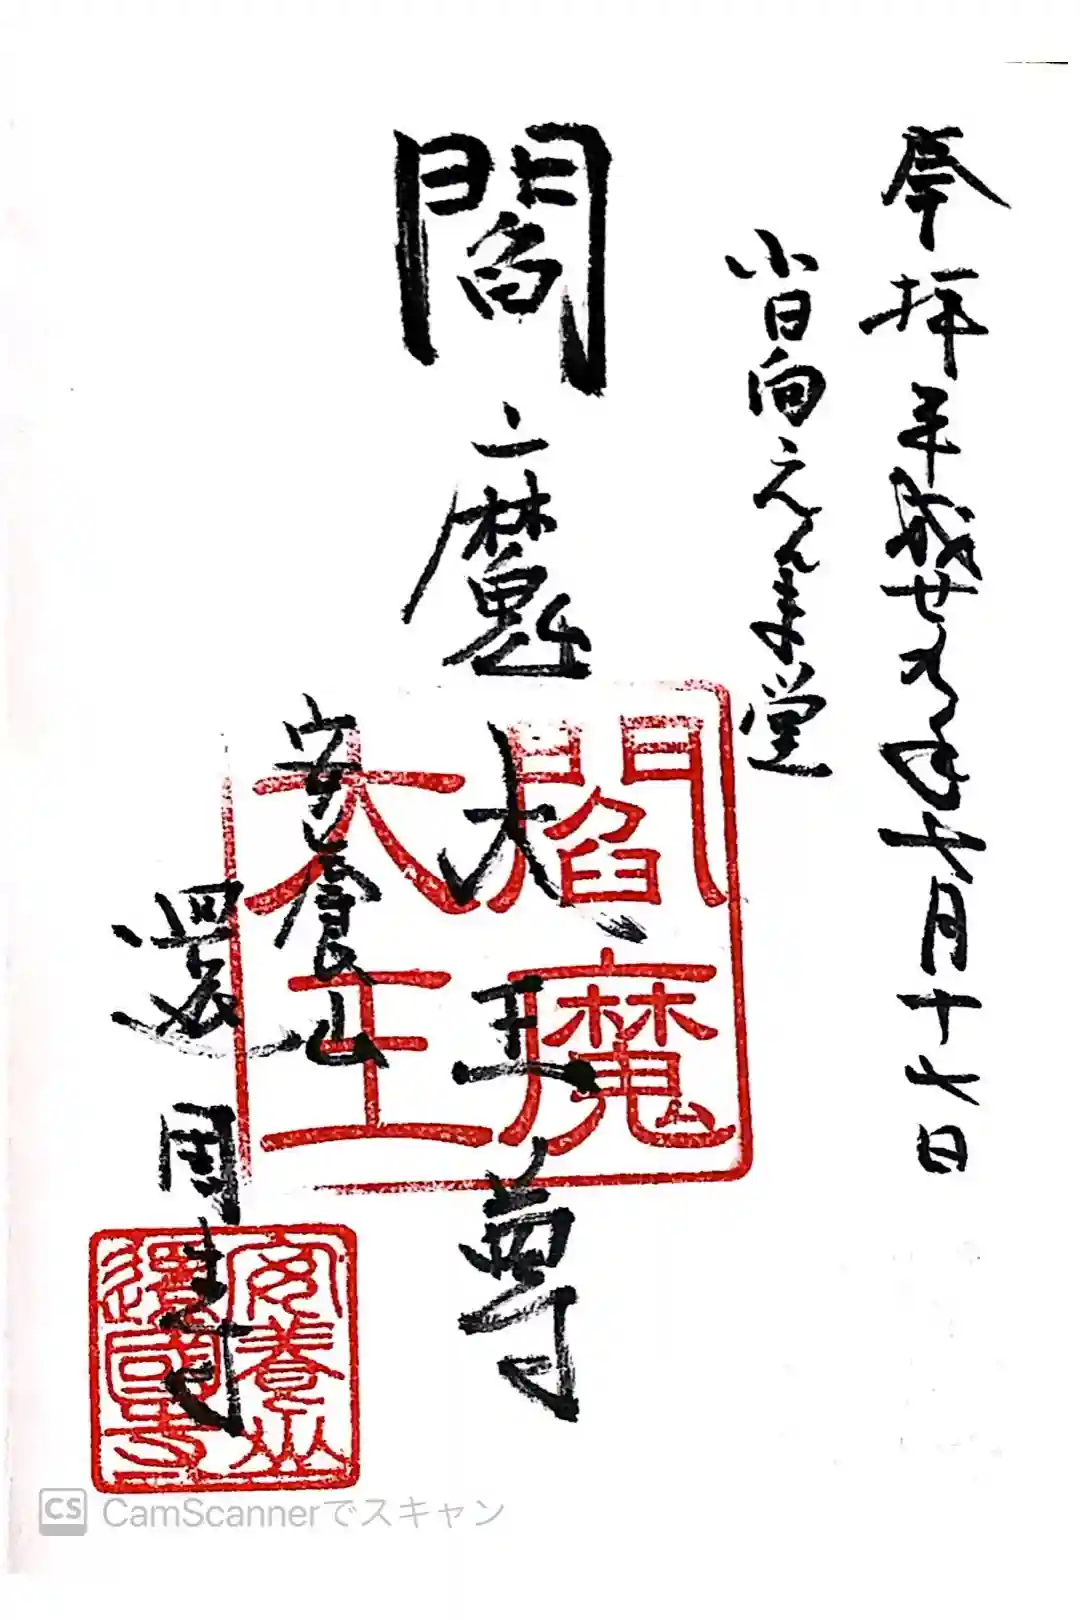 奉拝 平成廿九年七月十七日
小日向えんま堂
閻魔大王尊
安養山
還国寺
閻魔
大王
安養山
還國寺
CS CamScannerでスキャン